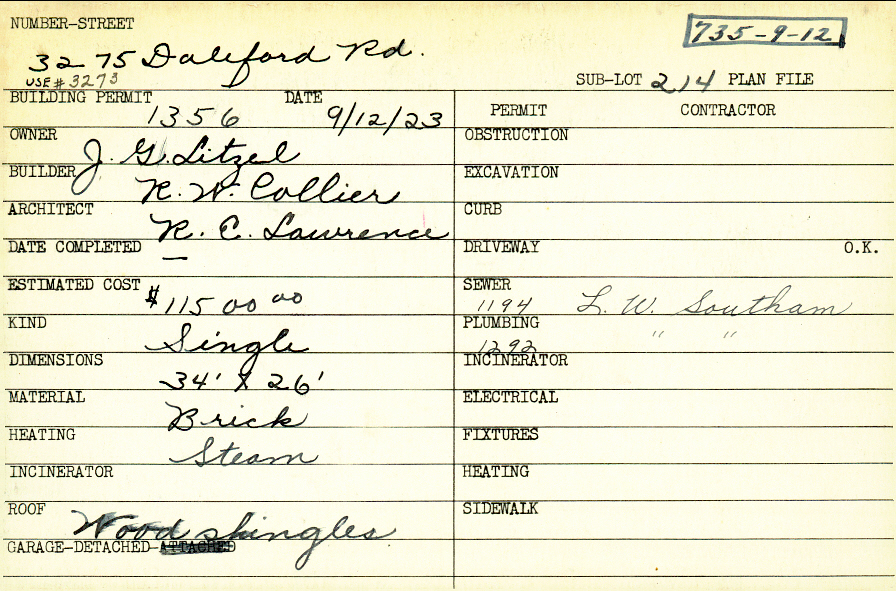 NUMBER-STREET
735-9-12
3275 Daleford Rd.
USE # 3273
SUB-LOT 214 PLAN FILE
BUILDING PERMIT 1356 DATE 9/12/23
PERMIT CONTRACTOR
OWNER J. G. Litzel
OBSTRUCTION
BUILDER R. W. Collier
EXCAVATION
ARCHITECT R. C. Lawrence
CURB
DATE COMPLETED —
DRIVEWAY O.K.
ESTIMATED COST $11500 00
SEWER 1194 L. W. Southam
KIND Single
PLUMBING 1292 " "
DIMENSIONS 34' X 26'
INCINERATOR
MATERIAL Brick
ELECTRICAL
HEATING Steam
FIXTURES
INCINERATOR
HEATING
ROOF Wood shingles
SIDEWALK
GARAGE-DETACHED-ATTACHED